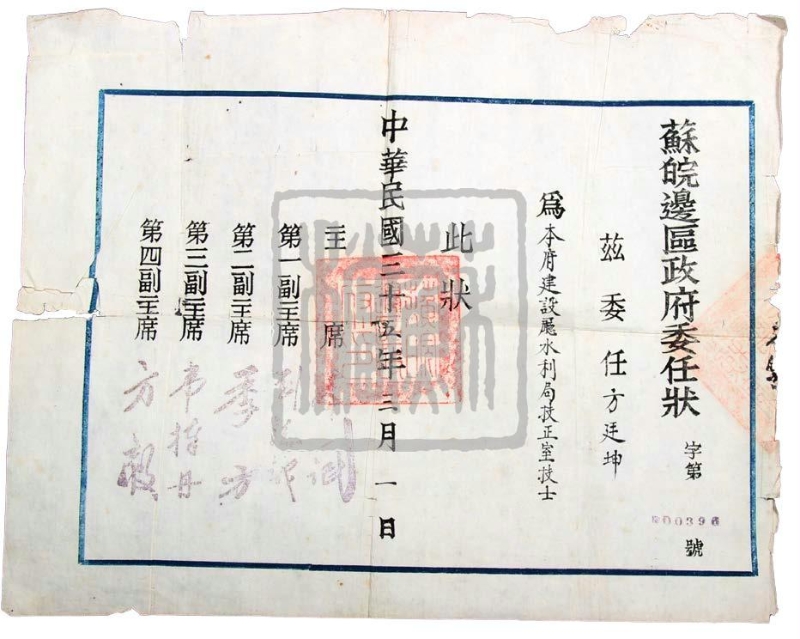 蘇皖邊區政府委任狀
字第
000396
號
茲委任方廷坤
為本府建設廳水利局技正室技士
此狀
中華民國三十五年三月一日
主席
第一副主席
第二副主席 季方
第三副主席 韋慤丹
第四副主席 方毅